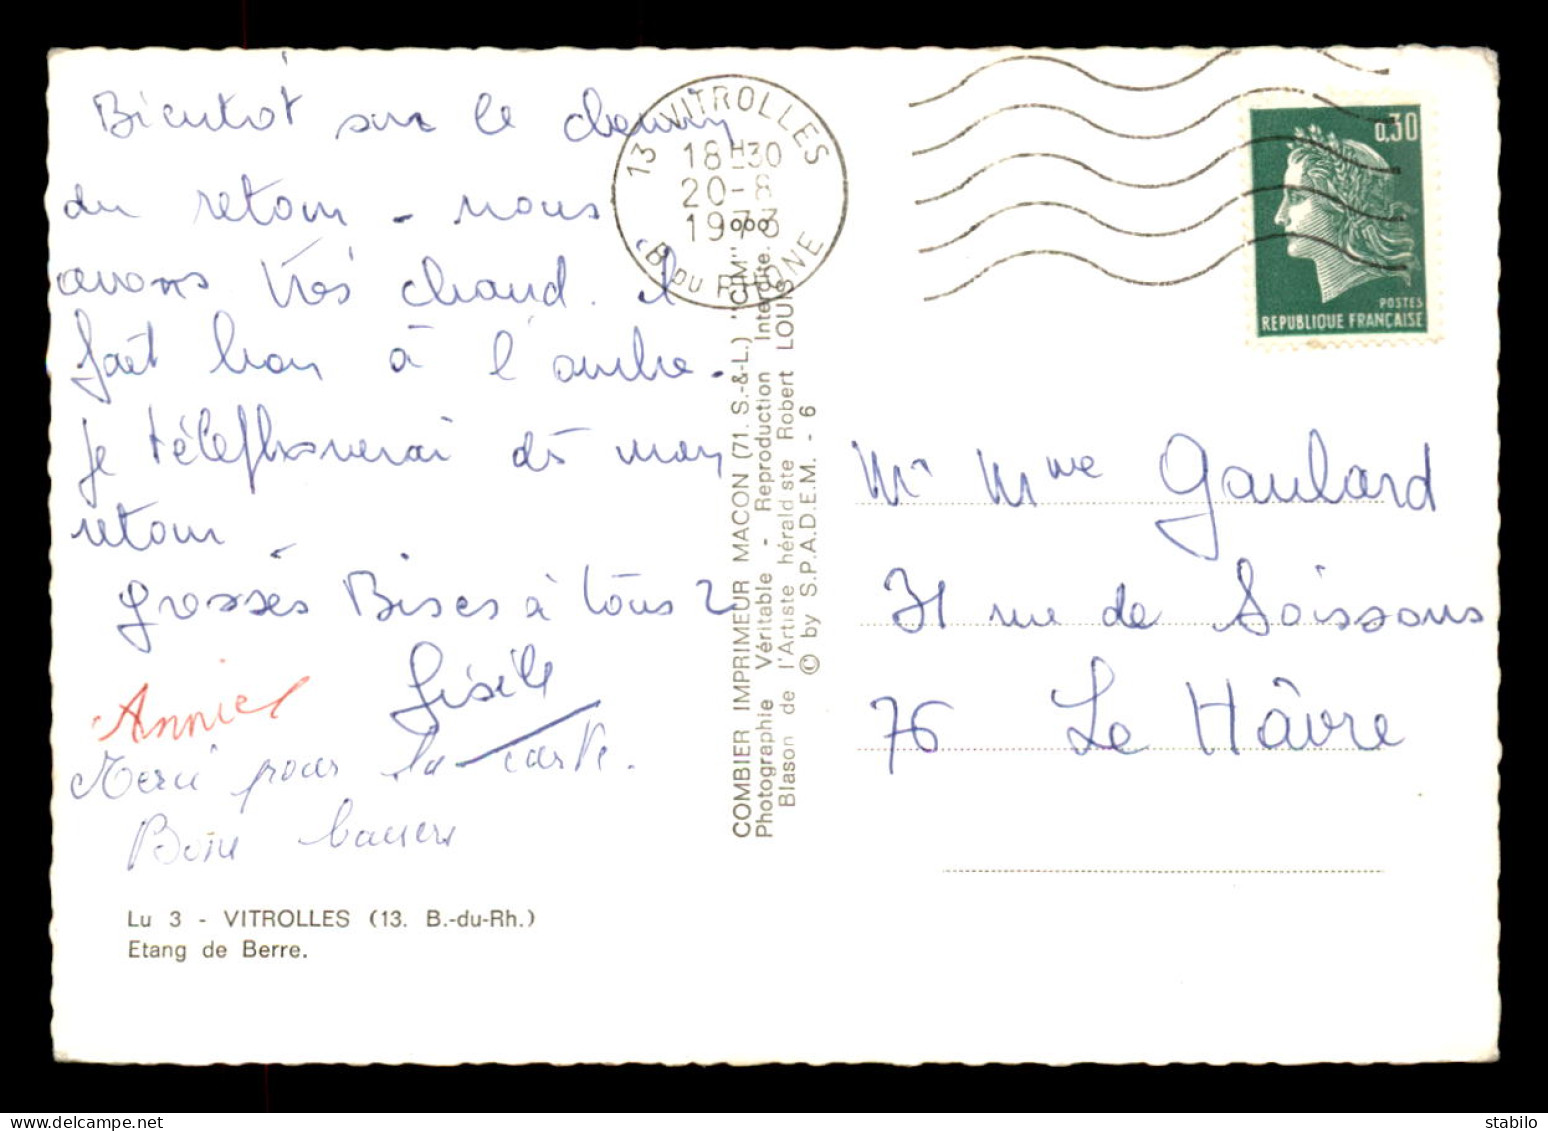 Bientrôt sur le chemin
du retour - nous
avons très chaud. il
fait bon à l'ombre.
je téléphonerai dès mon
retour
grosses Bises à tous 2
Gisèle
Annie
Merci pour la carte.
Bons baisers
Lu 3 - VITROLLES (13. B.-du-Rh.)
Etang de Berre.
COMBIER IMPRIMEUR MACON (71. S.-&-L.) "CIM"
Photographie Véritable - Reproduction Interdite.
Blason de l'Artiste héraldiste Robert LOUIS
© by S.P.A.D.E.M. - 6
13 VITROLLES
18H30
20-8
1973
B. DU RHONE
0,30
POSTES
REPUBLIQUE FRANÇAISE
Mr Mme Gaulard
31 rue de Soissons
76 Le Hâvre
stabilo